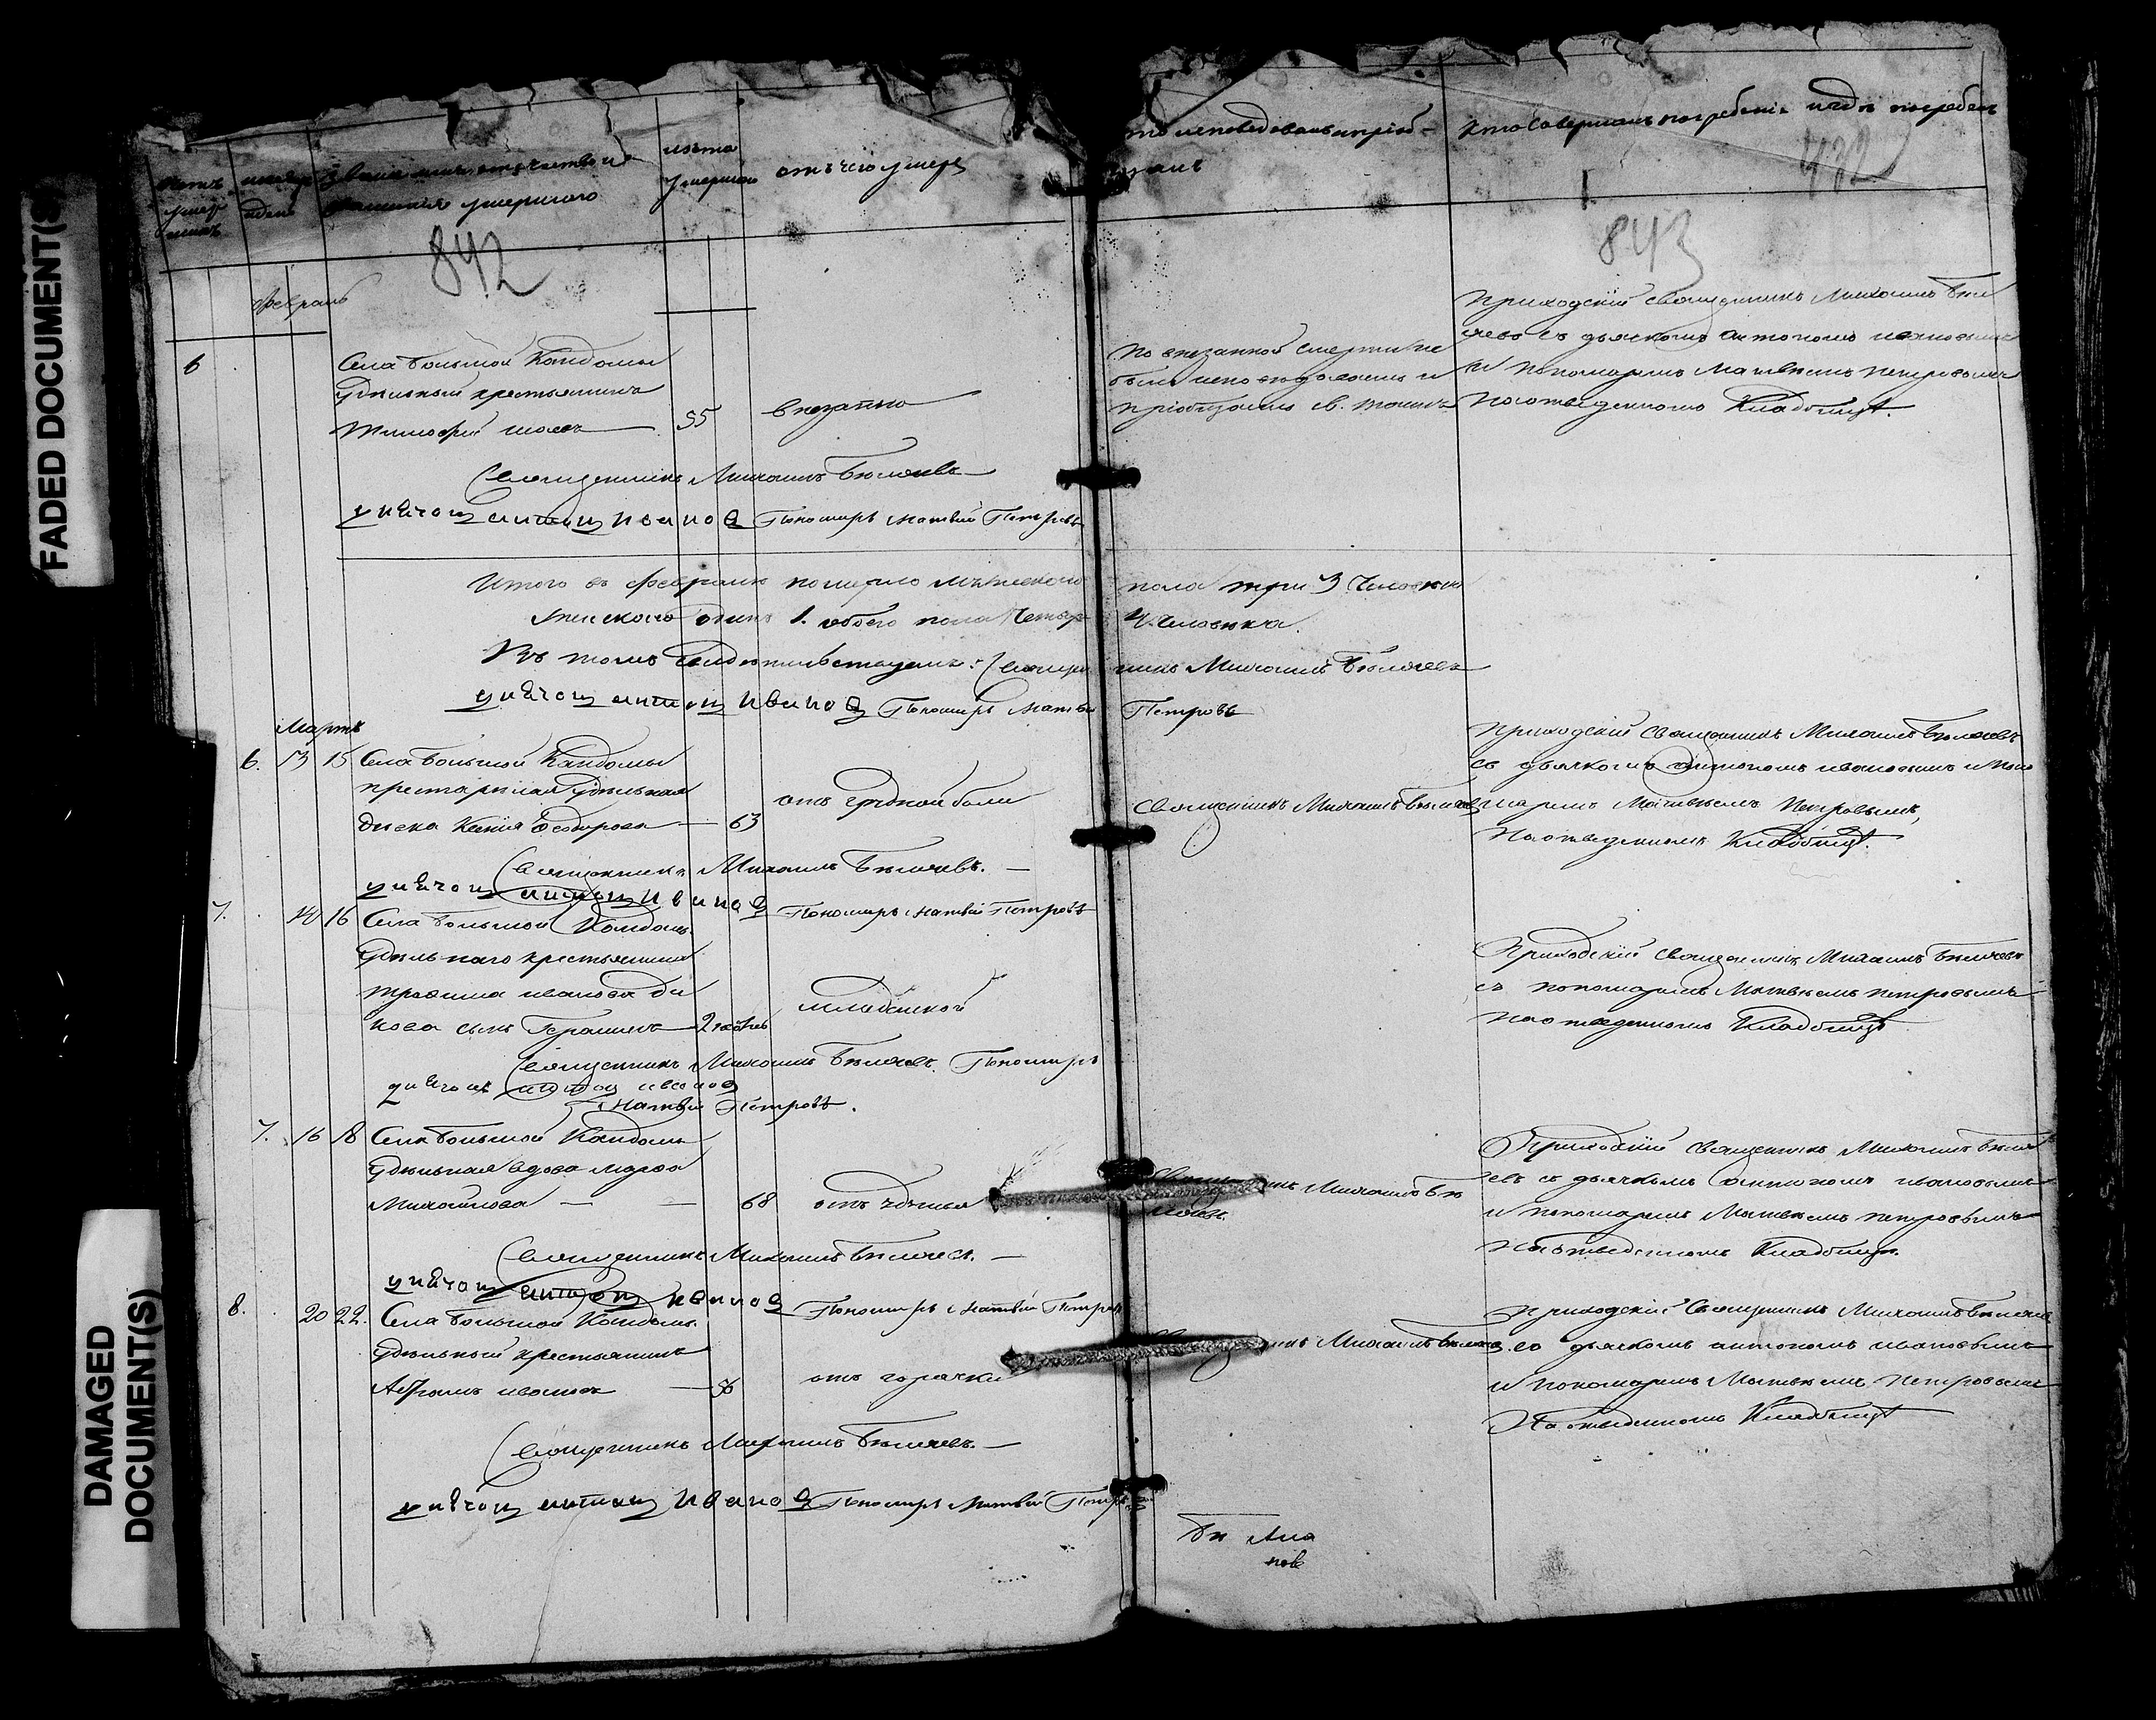 FADED DOCUMENT(S)
DAMAGED DOCUMENT(S)
звание имя отчество и
умершаго
лѣта умершаго
отъ чего умеръ
кто совершалъ погребеніе и гдѣ погребенъ
432
842
843
Февраль
6
Села Большой Кандалы
Удѣльный крестьянинъ
Тимофей
55
внезапно
По внезапной смерти не
былъ исповѣдованъ и
пріобщенъ св. таинъ
Приходскій священникъ Михаилъ Бѣл
яевъ съ дьячкомъ Антономъ Ивановымъ
и пономаремъ Матвѣемъ Петровымъ
На отведенномъ кладбищѣ.
Священникъ Михаилъ Бѣляевъ
Дьячокъ Антонъ Ивановъ Пономарь Матвѣй Петровъ
Итого въ Февралѣ померло мужескаго пола три 3 человѣка
женскаго одинъ 1. обоего пола четыре 4. человѣка.
Въ томъ свидѣтельствуемъ: Священникъ Михаилъ Бѣляевъ
Дьячокъ Антонъ Ивановъ Пономарь Матвѣй Петровъ
Мартъ
6. 13 15 Села Большой Кандалы
престарѣлая Удѣльная
дѣвка Ксенія Ѳедорова 63
отъ грудной боли
Священникъ Михаилъ Бѣляевъ
Приходскій священникъ Михаилъ Бѣляевъ
съ дьячкомъ Антономъ Ивановымъ и поно
маремъ Матвѣемъ Петровымъ,
На отведенномъ кладбищѣ.
Священникъ Михаилъ Бѣляевъ.
Дьячокъ Антонъ Ивановъ Пономарь Матвѣй Петровъ
7. 14 16 Села Большой Кандалы
Удѣльнаго крестьянина
Трофима Иванова
сынъ Герасимъ 2
младенской
Приходскій священникъ Михаилъ Бѣляевъ
съ пономаремъ Матвѣемъ Петровымъ
На отведенномъ кладбищѣ
Священникъ Михаилъ Бѣляевъ. Пономарь
Дьячокъ Антонъ Ивановъ
Матвѣй Петровъ.
7. 16 18 Села Большой Кандалы
Удѣльная вдова Марфа
Михайлова 68
отъ удушья
Священникъ Михаилъ Бѣ
ляевъ.
Приходскій священникъ Михаилъ Бѣля
евъ съ дьячкомъ Антономъ Ивановымъ
и пономаремъ Матвѣемъ Петровымъ
На отведенномъ кладбищѣ.
Священникъ Михаилъ Бѣляевъ.
Дьячокъ Антонъ Ивановъ Пономарь Матвѣй Петровъ
8. 20 22. Села Большой Кандалы
Удѣльный крестьянинъ
Абрамъ Ивановъ
отъ горячки
Священникъ Михаилъ Бѣляевъ
Приходскій священникъ Михаилъ Бѣляевъ
со дьячкомъ Антономъ Ивановымъ
и пономаремъ Матвѣемъ Петровымъ
На отведенномъ кладбищѣ
Священникъ Михаилъ Бѣляевъ.
Дьячокъ Антонъ Ивановъ Пономарь Матвѣй Петровъ